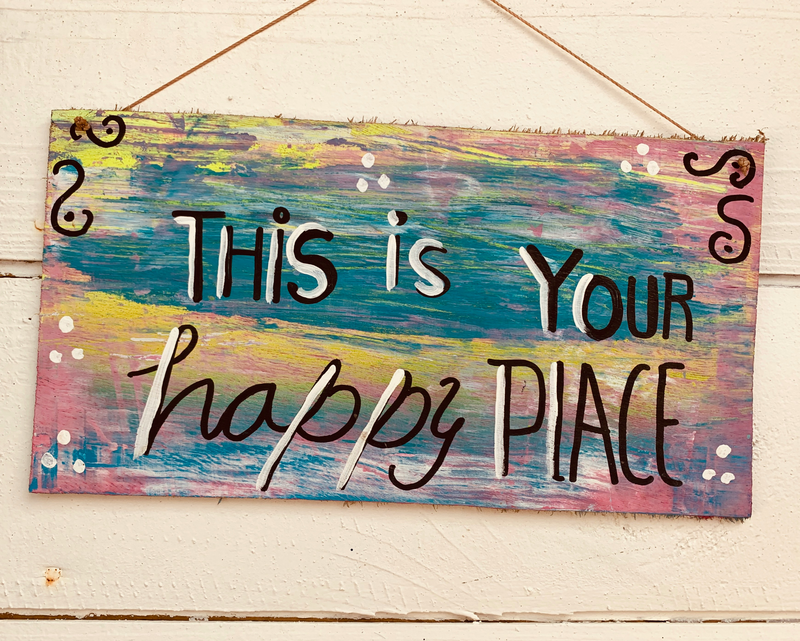 THiS is YOUR
happy PlACE